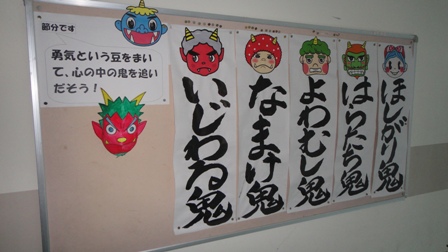 節分です
勇気という豆をまい
て、心の中の鬼を追い
だそう！
いじわる鬼
なまけ鬼
よわむし鬼
はらたち鬼
ほしがり鬼